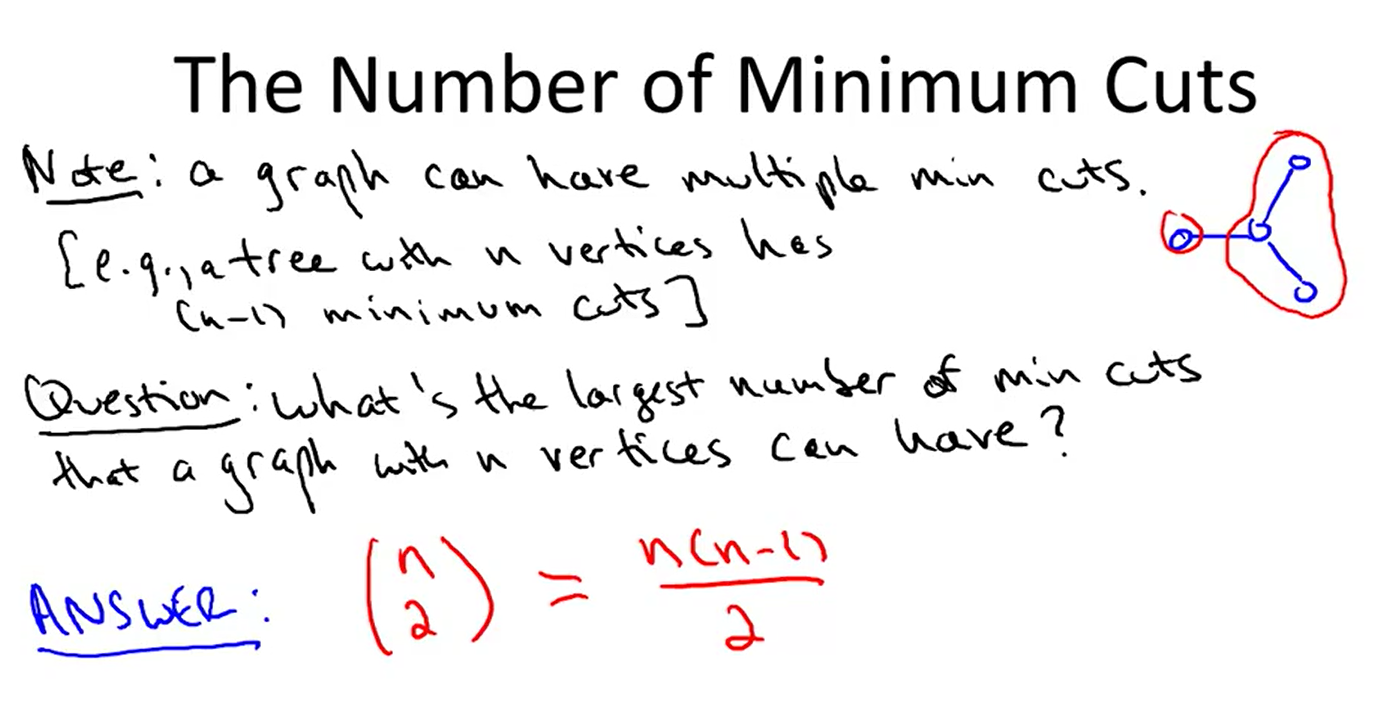 The Number of Minimum Cuts
Note: a graph can have multiple min cuts.
[e.g., a tree with n vertices has
(n-1) minimum cuts]
Question: what's the largest number of min cuts
that a graph with n vertices can have?
ANSWER: (n 2) = n(n-1)/2